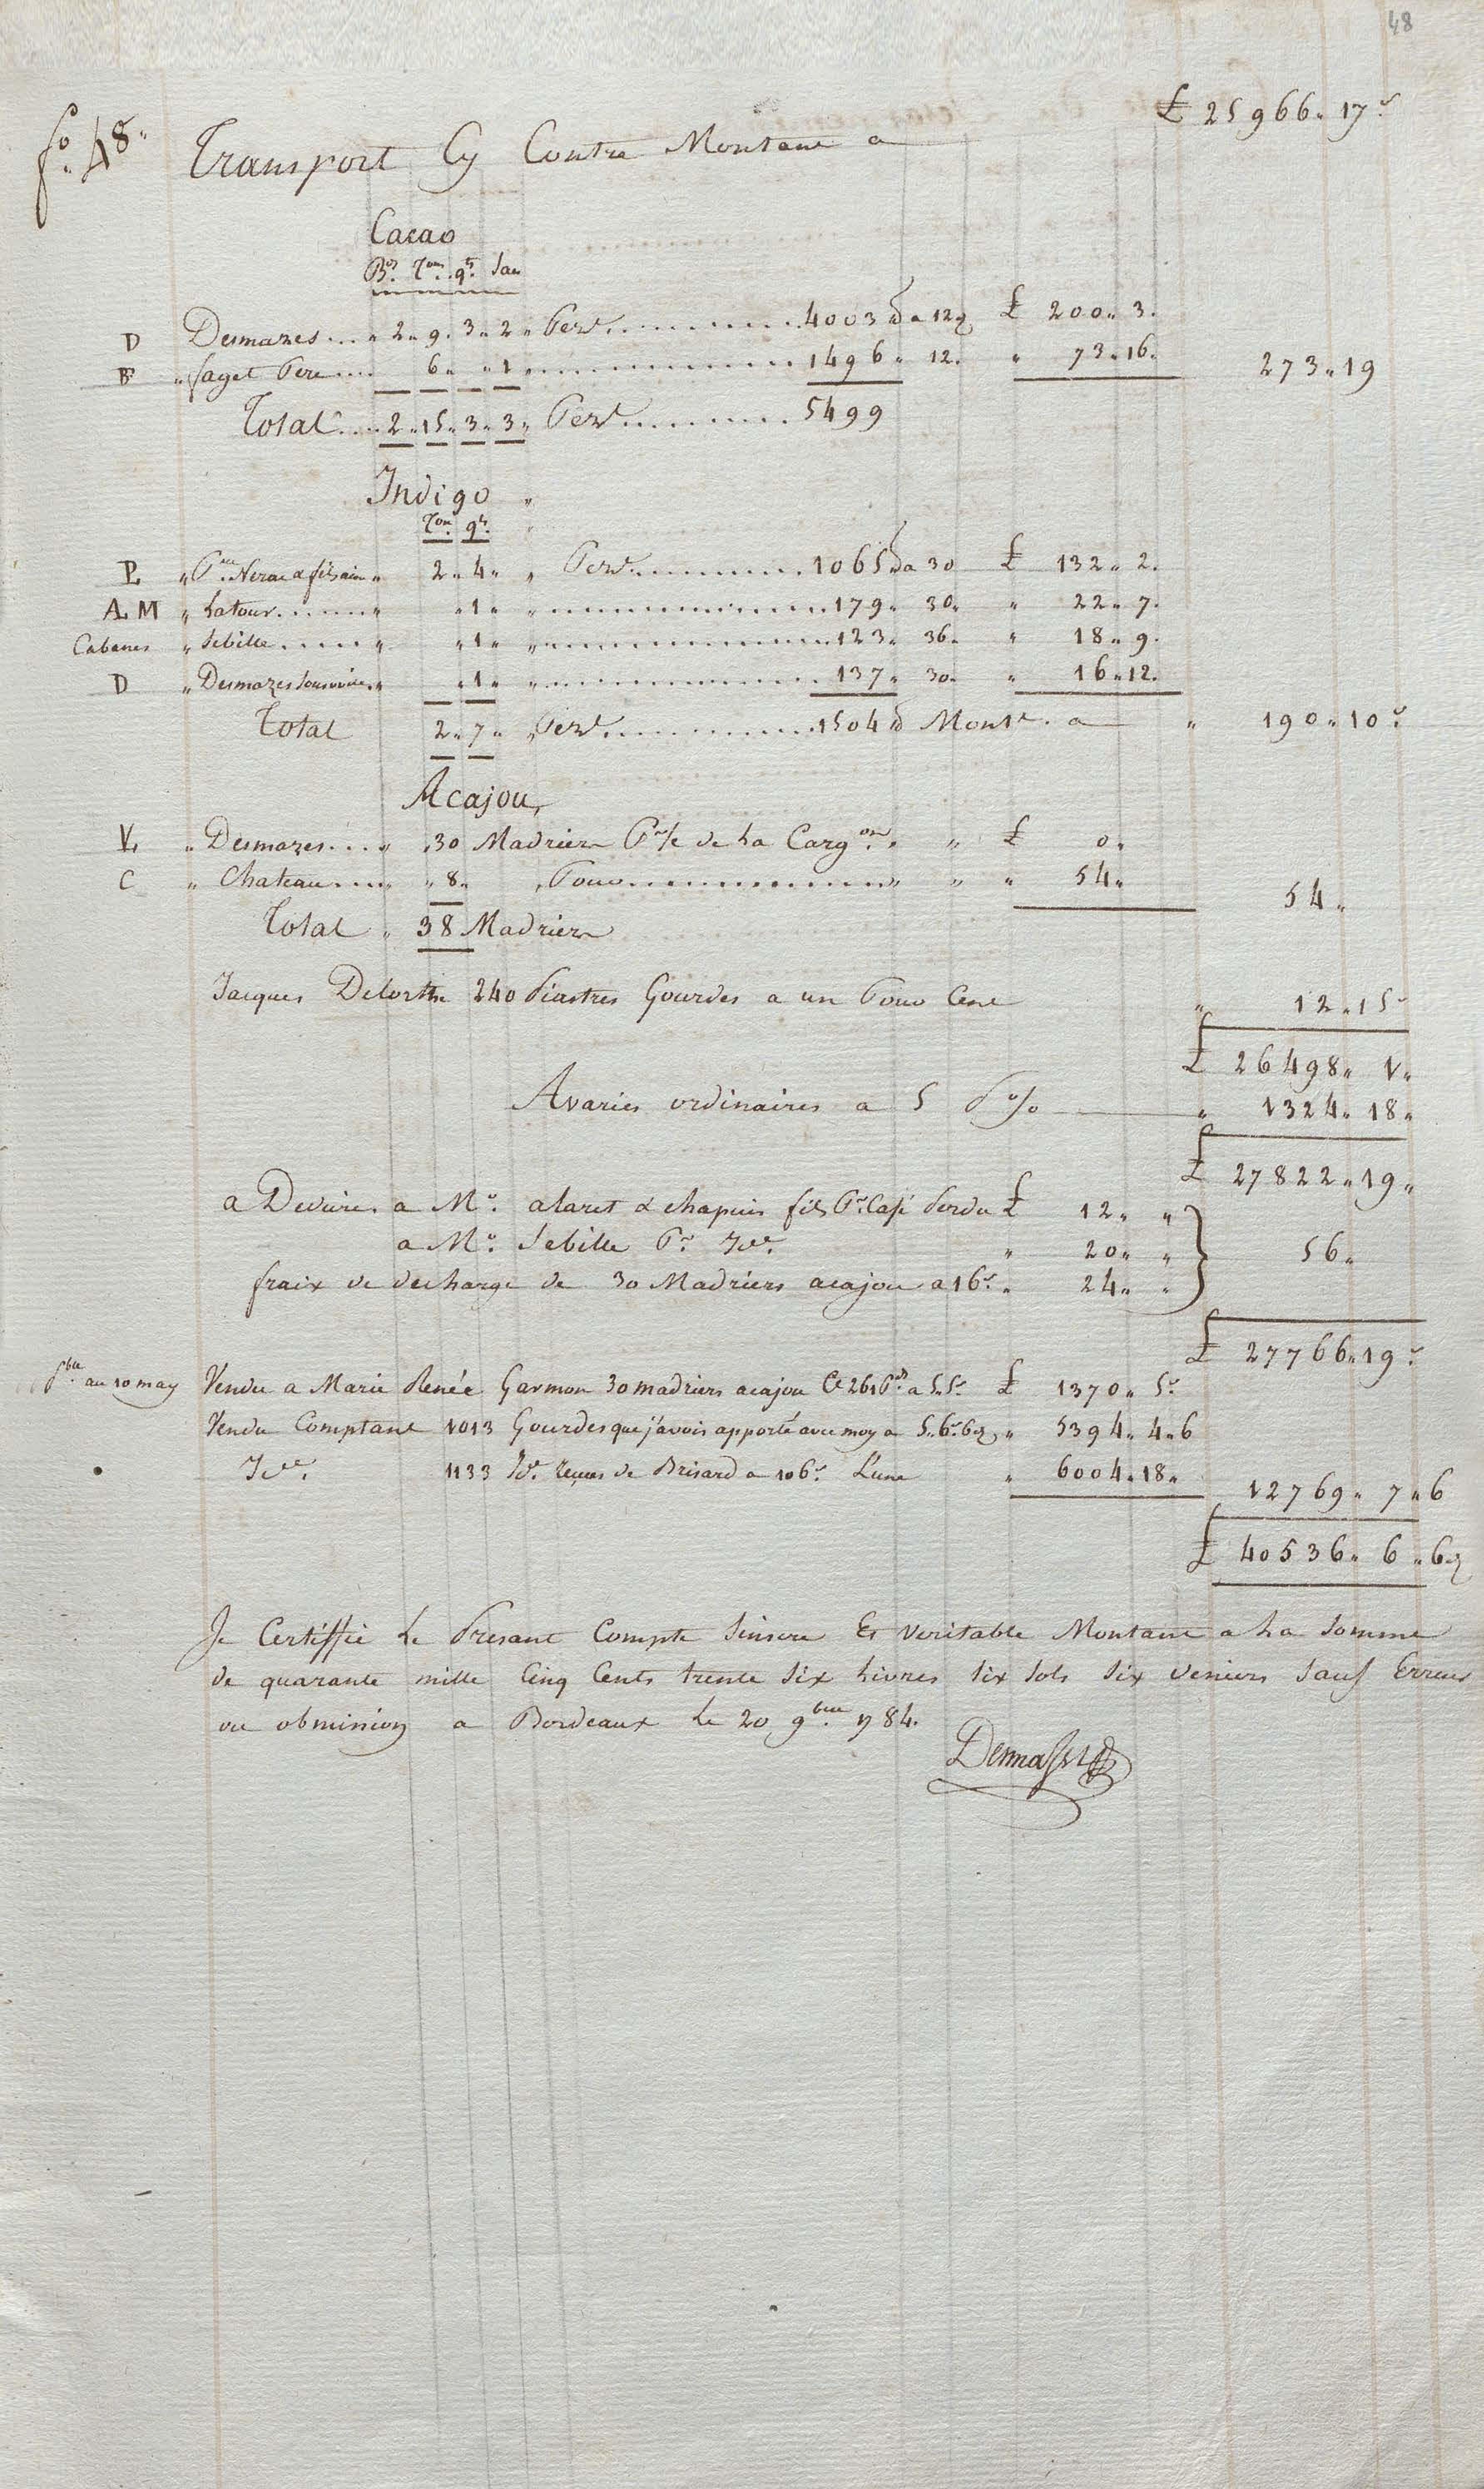 48
£ 25966 " 17 s
fo. 48. Transport Cy Contre Montant a
Cacao
Bes. Tons. qts. Sacs
D Desmazes.... " 2 " 9 " 3 " 2 " Pezt ............ 4003 lb a 12 d £ 200 " 3.
F " faget Pere .... 6 " " 1 " ............ 1496 " 12. " 73 " 16. 273 " 19
Total .... 2 " 15 " 3 " 3 " Pezt ......... 5499
Indigo "
Tons qts.
P " Pre. Nerac & fils ainé " 2 " 4 " " Pezt ......... 1065 lb a 30 £ 132 " 2.
A. M " Latour ...... " " 1 " " ............ 179 " 30 " " 22 " 7.
Cabanes " Sebille ..... " " 1 " " ............ 123 " 36 " " 18 " 9.
D " Desmazes " " 1 " " ............ 137 " 30 " " 16 " 12.
Total 2 " 7 " " Pezt ............ 1504 lb Monte. a " 190 " 10 s
Acajou,
V. " Desmazes .... " " 30 Madriers Pr/c de La Cargon. " " £ 0 "
C " Chateau ..... " " 8 " " Pour ............ " " " 54 " 54 "
Total " 38 Madriers
Jacques Delorthe 240 Piastres Gourdes a un Pour Cent " 12 " 15
£ 26498 " 1 "
Avaries ordinaires a 5 P % " 1324 " 18 "
£ 27822 " 19 "
a Deduire. a Mr. alaret & chapuis fils Pr. Café Perdu £ 12 " "
a Mr. Sebille Pr. Idem. " 20 " " 56 "
fraix de decharge de 30 Madriers acajou a 16 s " 24 " "
£ 27766 " 19 s
au 10 may Vendu a Marie Renée Garmon 30 madriers acajou Ct 261 Pds a 5 " 5 s £ 1370 " 5 s
Vendu Comptant 1013 Gourdes que j'avois apporté avec moy a 5 " 6 s 6 d " 5394 " 4 " 6
Idem. 1133 Id. reçues de Brisard a 106 s L'une " 6004 " 18 " 12769 " 7 " 6
£ 40536 " 6 " 6 d
Je Certiffie Le Presant Compte Sinsere Et Veritable Montant a La Somme
de quarante mille Cinq Cents trente Six Livres Six Sols Six deniers Sauf Erreur
ou obmission a Bordeaux Le 20 9bre 1784.